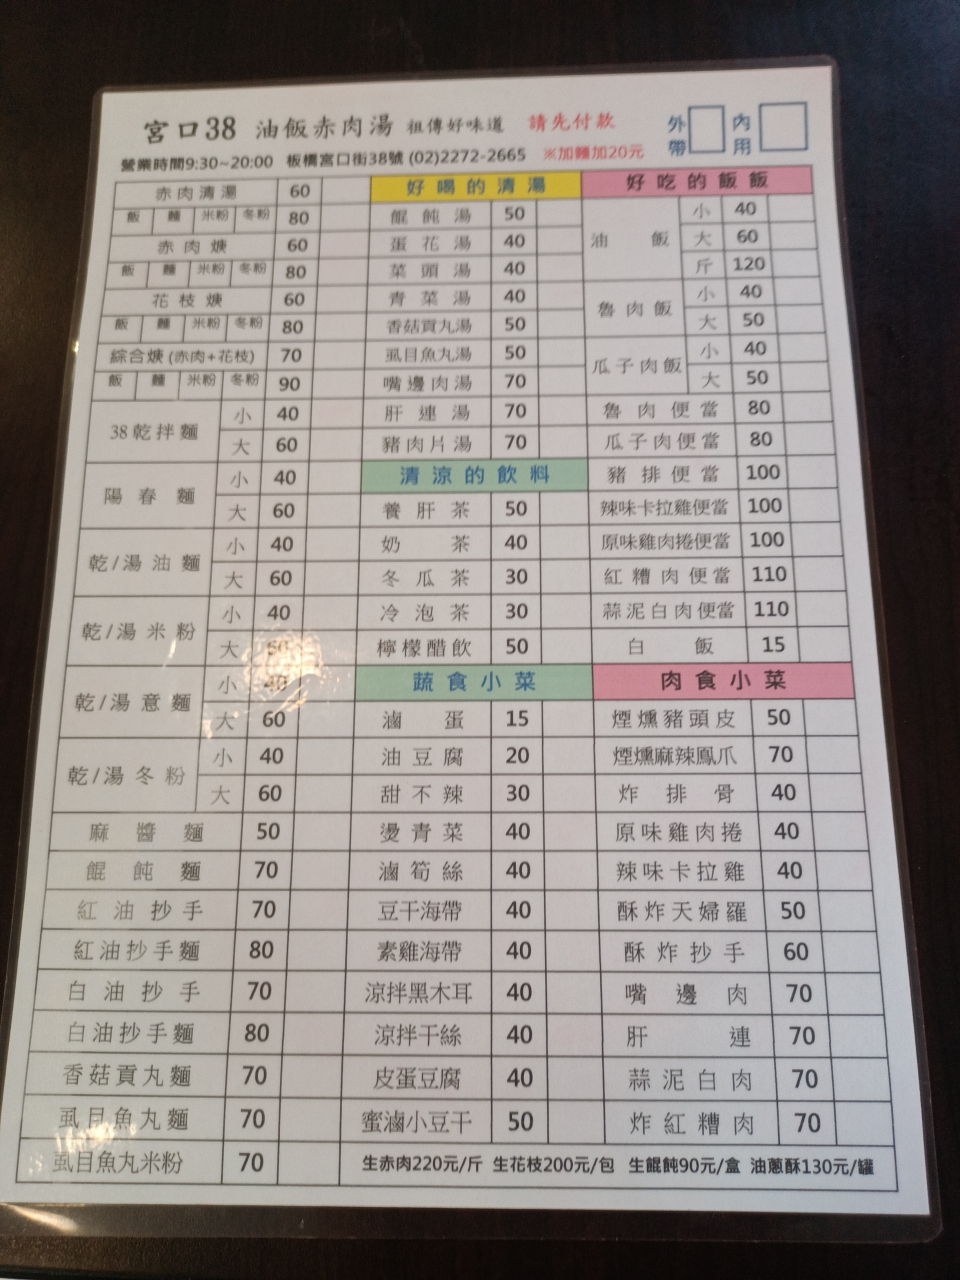 宮口38 油飯赤肉湯 祖傳好味道 請先付款 外帶 內用
營業時間9:30~20:00 板橋宮口街38號 (02)2272-2665 ※加麵加20元
赤肉清湯 60
飯 麵 米粉 冬粉 80
赤肉焿 60
飯 麵 米粉 冬粉 80
花枝焿 60
飯 麵 米粉 冬粉 80
綜合焿(赤肉+花枝) 70
飯 麵 米粉 冬粉 90
38乾拌麵 小 40
大 60
陽春麵 小 40
大 60
乾/湯油麵 小 40
大 60
乾/湯米粉 小 40
大 60
乾/湯意麵 小 40
大 60
乾/湯冬粉 小 40
大 60
麻醬麵 50
餛飩麵 70
紅油抄手 70
紅油抄手麵 80
白油抄手 70
白油抄手麵 80
香菇貢丸麵 70
虱目魚丸麵 70
虱目魚丸米粉 70
好喝的清湯
餛飩湯 50
蛋花湯 40
菜頭湯 40
青菜湯 40
香菇貢丸湯 50
虱目魚丸湯 50
嘴邊肉湯 70
肝連湯 70
豬肉片湯 70
清涼的飲料
養肝茶 50
奶茶 40
冬瓜茶 30
冷泡茶 30
檸檬醋飲 50
蔬食小菜
滷蛋 15
油豆腐 20
甜不辣 30
燙青菜 40
滷筍絲 40
豆干海帶 40
素雞海帶 40
涼拌黑木耳 40
涼拌干絲 40
皮蛋豆腐 40
蜜滷小豆干 50
好吃的飯飯
油飯 小 40
大 60
斤 120
魯肉飯 小 40
大 50
瓜子肉飯 小 40
大 50
魯肉便當 80
瓜子肉便當 80
豬排便當 100
辣味卡拉雞便當 100
原味雞肉捲便當 100
紅糟肉便當 110
蒜泥白肉便當 110
白飯 15
肉食小菜
煙燻豬頭皮 50
煙燻麻辣鳳爪 70
炸排骨 40
原味雞肉捲 40
辣味卡拉雞 40
酥炸天婦羅 50
酥炸抄手 60
嘴邊肉 70
肝連 70
蒜泥白肉 70
炸紅糟肉 70
生赤肉220元/斤 生花枝200元/包 生餛飩90元/盒 油蔥酥130元/罐